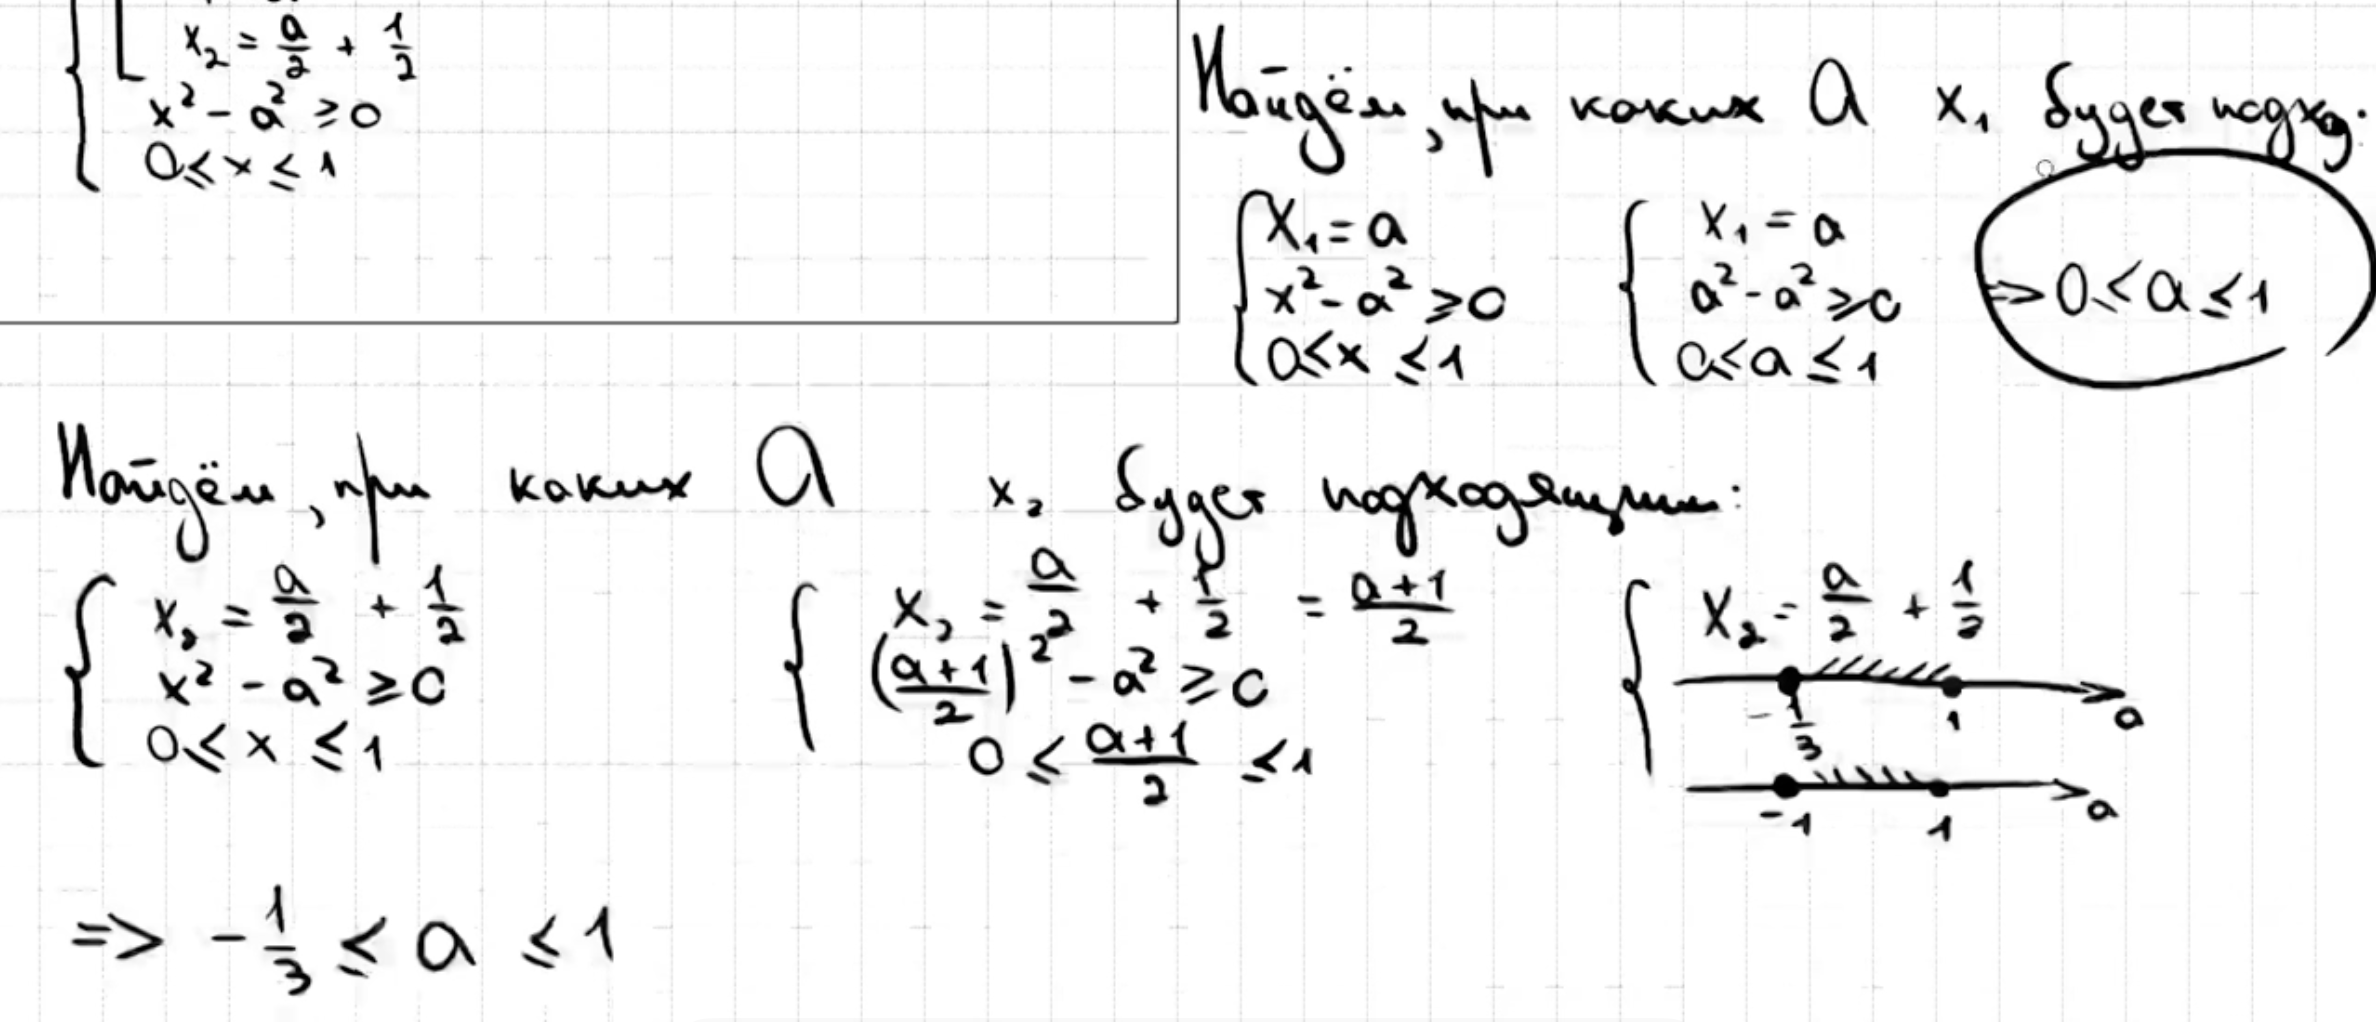 x₂ = a/2 + 1/2
x² - a² ≥ 0
0 ≤ x ≤ 1
Найдём, при каких a x₁ будет подход.
x₁ = a
x² - a² ≥ 0
0 ≤ x ≤ 1
x₁ = a
a² - a² ≥ 0
0 ≤ a ≤ 1
=> 0 ≤ a ≤ 1
Найдём, при каких a x₂ будет подходящим:
x₂ = a/2 + 1/2
x² - a² ≥ 0
0 ≤ x ≤ 1
x₂ = a/2 + 1/2 = (a+1)/2
((a+1)/2)² - a² ≥ 0
0 ≤ (a+1)/2 ≤ 1
x₂ = a/2 + 1/2
-1/3 1 a
-1 1 a
=> -1/3 ≤ a ≤ 1